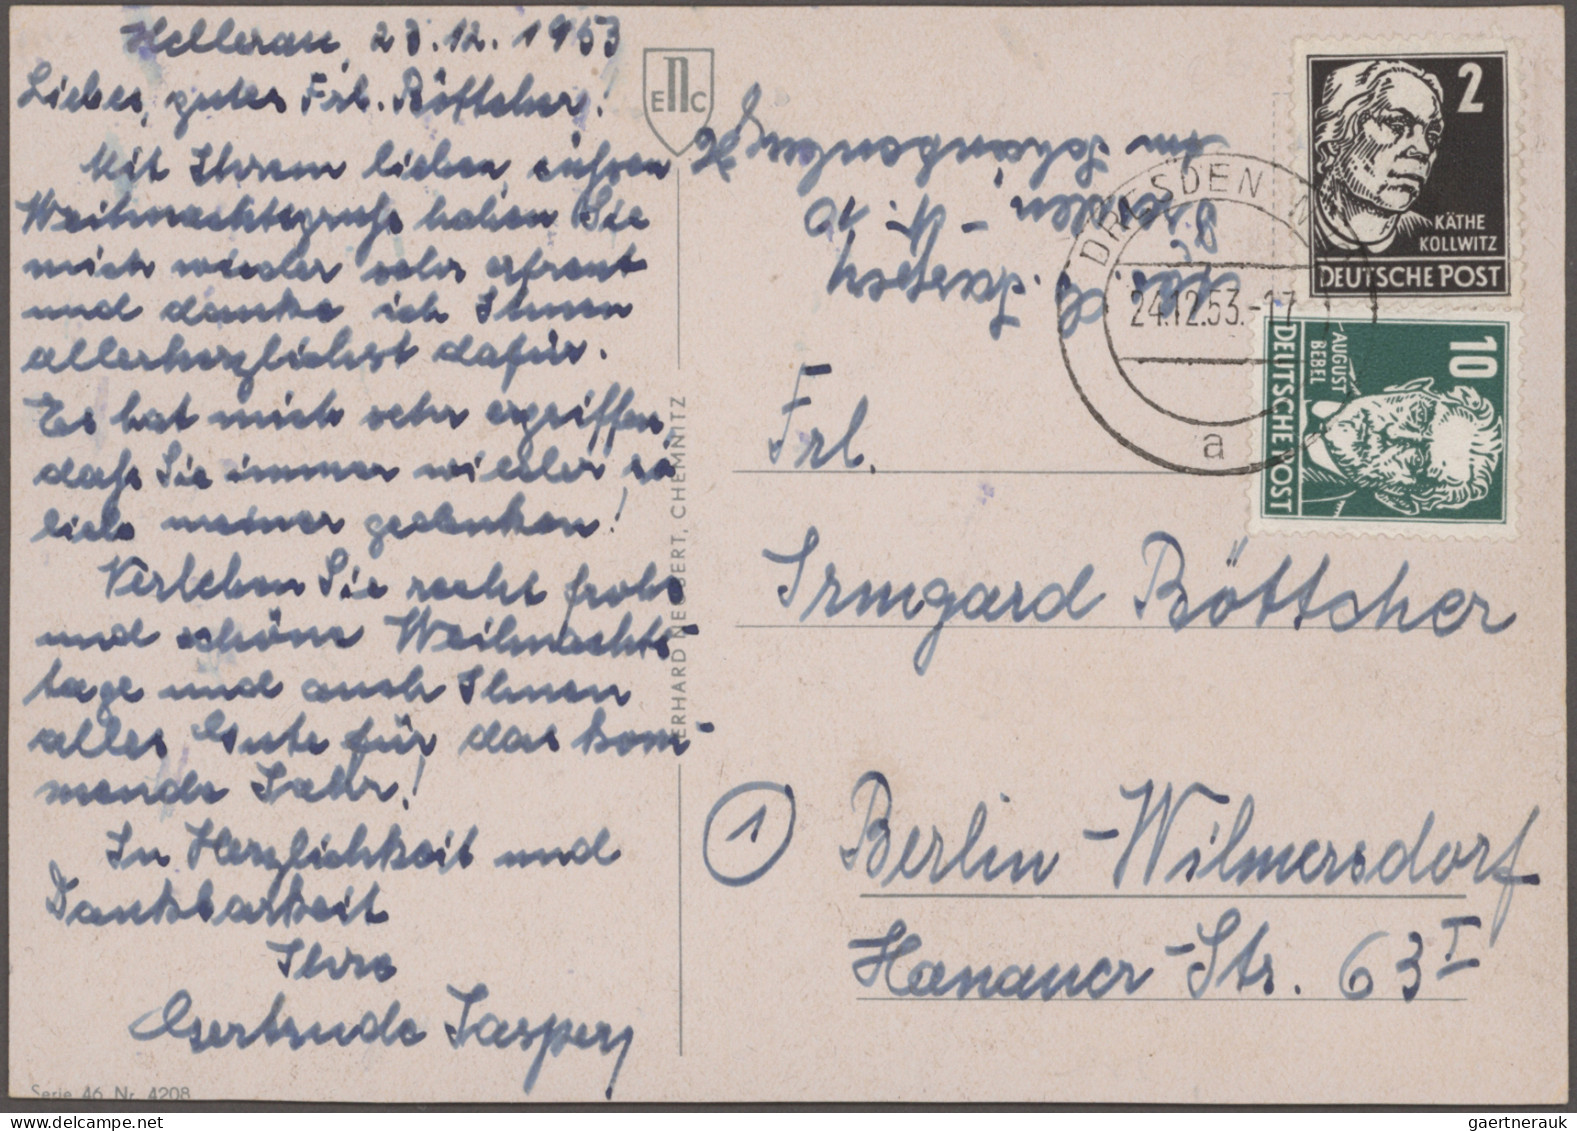 Hellerau, 23.12.1953
Liebes, gutes Frl. Böttcher!
Mit Ihrem lieben, süßen
Weihnachtsgruß haben Sie
mich wieder sehr erfreut
und danke ich Ihnen
allerherzlichst dafür.
Es hat mich sehr ergriffen,
daß Sie immer wieder so
lieb meiner gedenken!
Verleben Sie recht frohe
und schöne Weihnachts-
tage und auch Ihnen
alles Gute für das kom-
mende Jahr!
In Herzlichkeit und
Dankbarkeit
Ihre
Gertrude Jaspery
Serie 46 Nr. 4208
ENC
ERHARD NEUBERT, CHEMNITZ
G. Jaspery
Dresden - N. 10
Am
DRESDEN N
24.12.53.-17
a
2
KÄTHE
KOLLWITZ
DEUTSCHE POST
10
AUGUST
BEBEL
DEUTSCHE POST
Frl.
Irmgard Böttscher
1
Berlin-Wilmersdorf
Hanauer-Str. 63 I
gaertnerauk